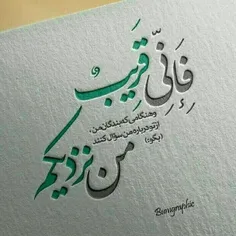 فَإِنِّي قَرِيبٌ
وهنگامی که بندگان من،
از تو درباره من سؤال کنند
(بگو:)
من نزدیکم
Borngraphic